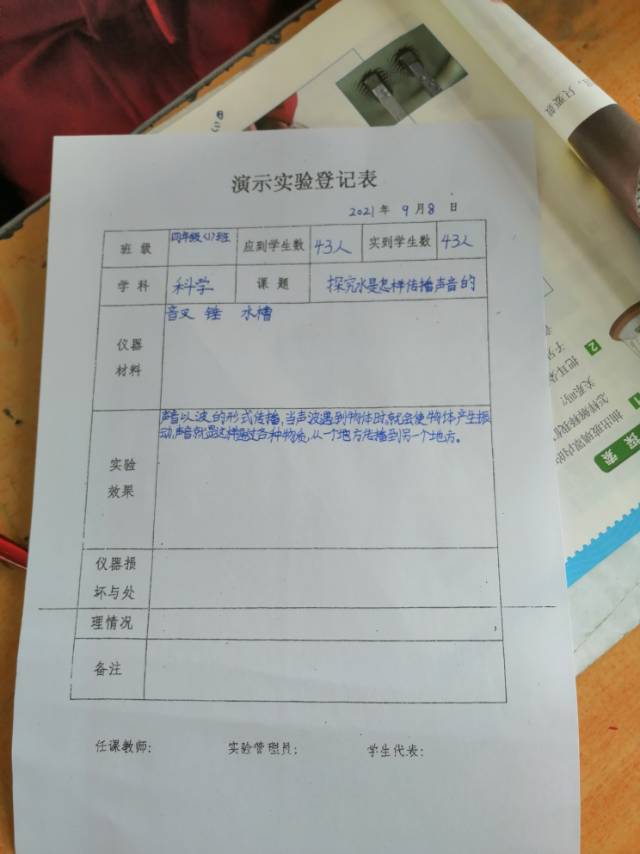 演示实验登记表
2021年 9月8日
班级 四年级(1)班 应到学生数 43人 实到学生数 43人
学科 科学 课题 探究水是怎样传播声音的
仪器
材料
音叉 锤 水槽
实验
效果
声音以波的形式传播,当声波遇到物体时,就会使物体产生振
动,声音就是这样通过各种物质,从一个地方传播到另一个地方。
仪器损
坏与处
理情况
备注
任课教师: 实验管理员: 学生代表:
探索
1
2
怎样解释我们
关系吗?
把耳朵